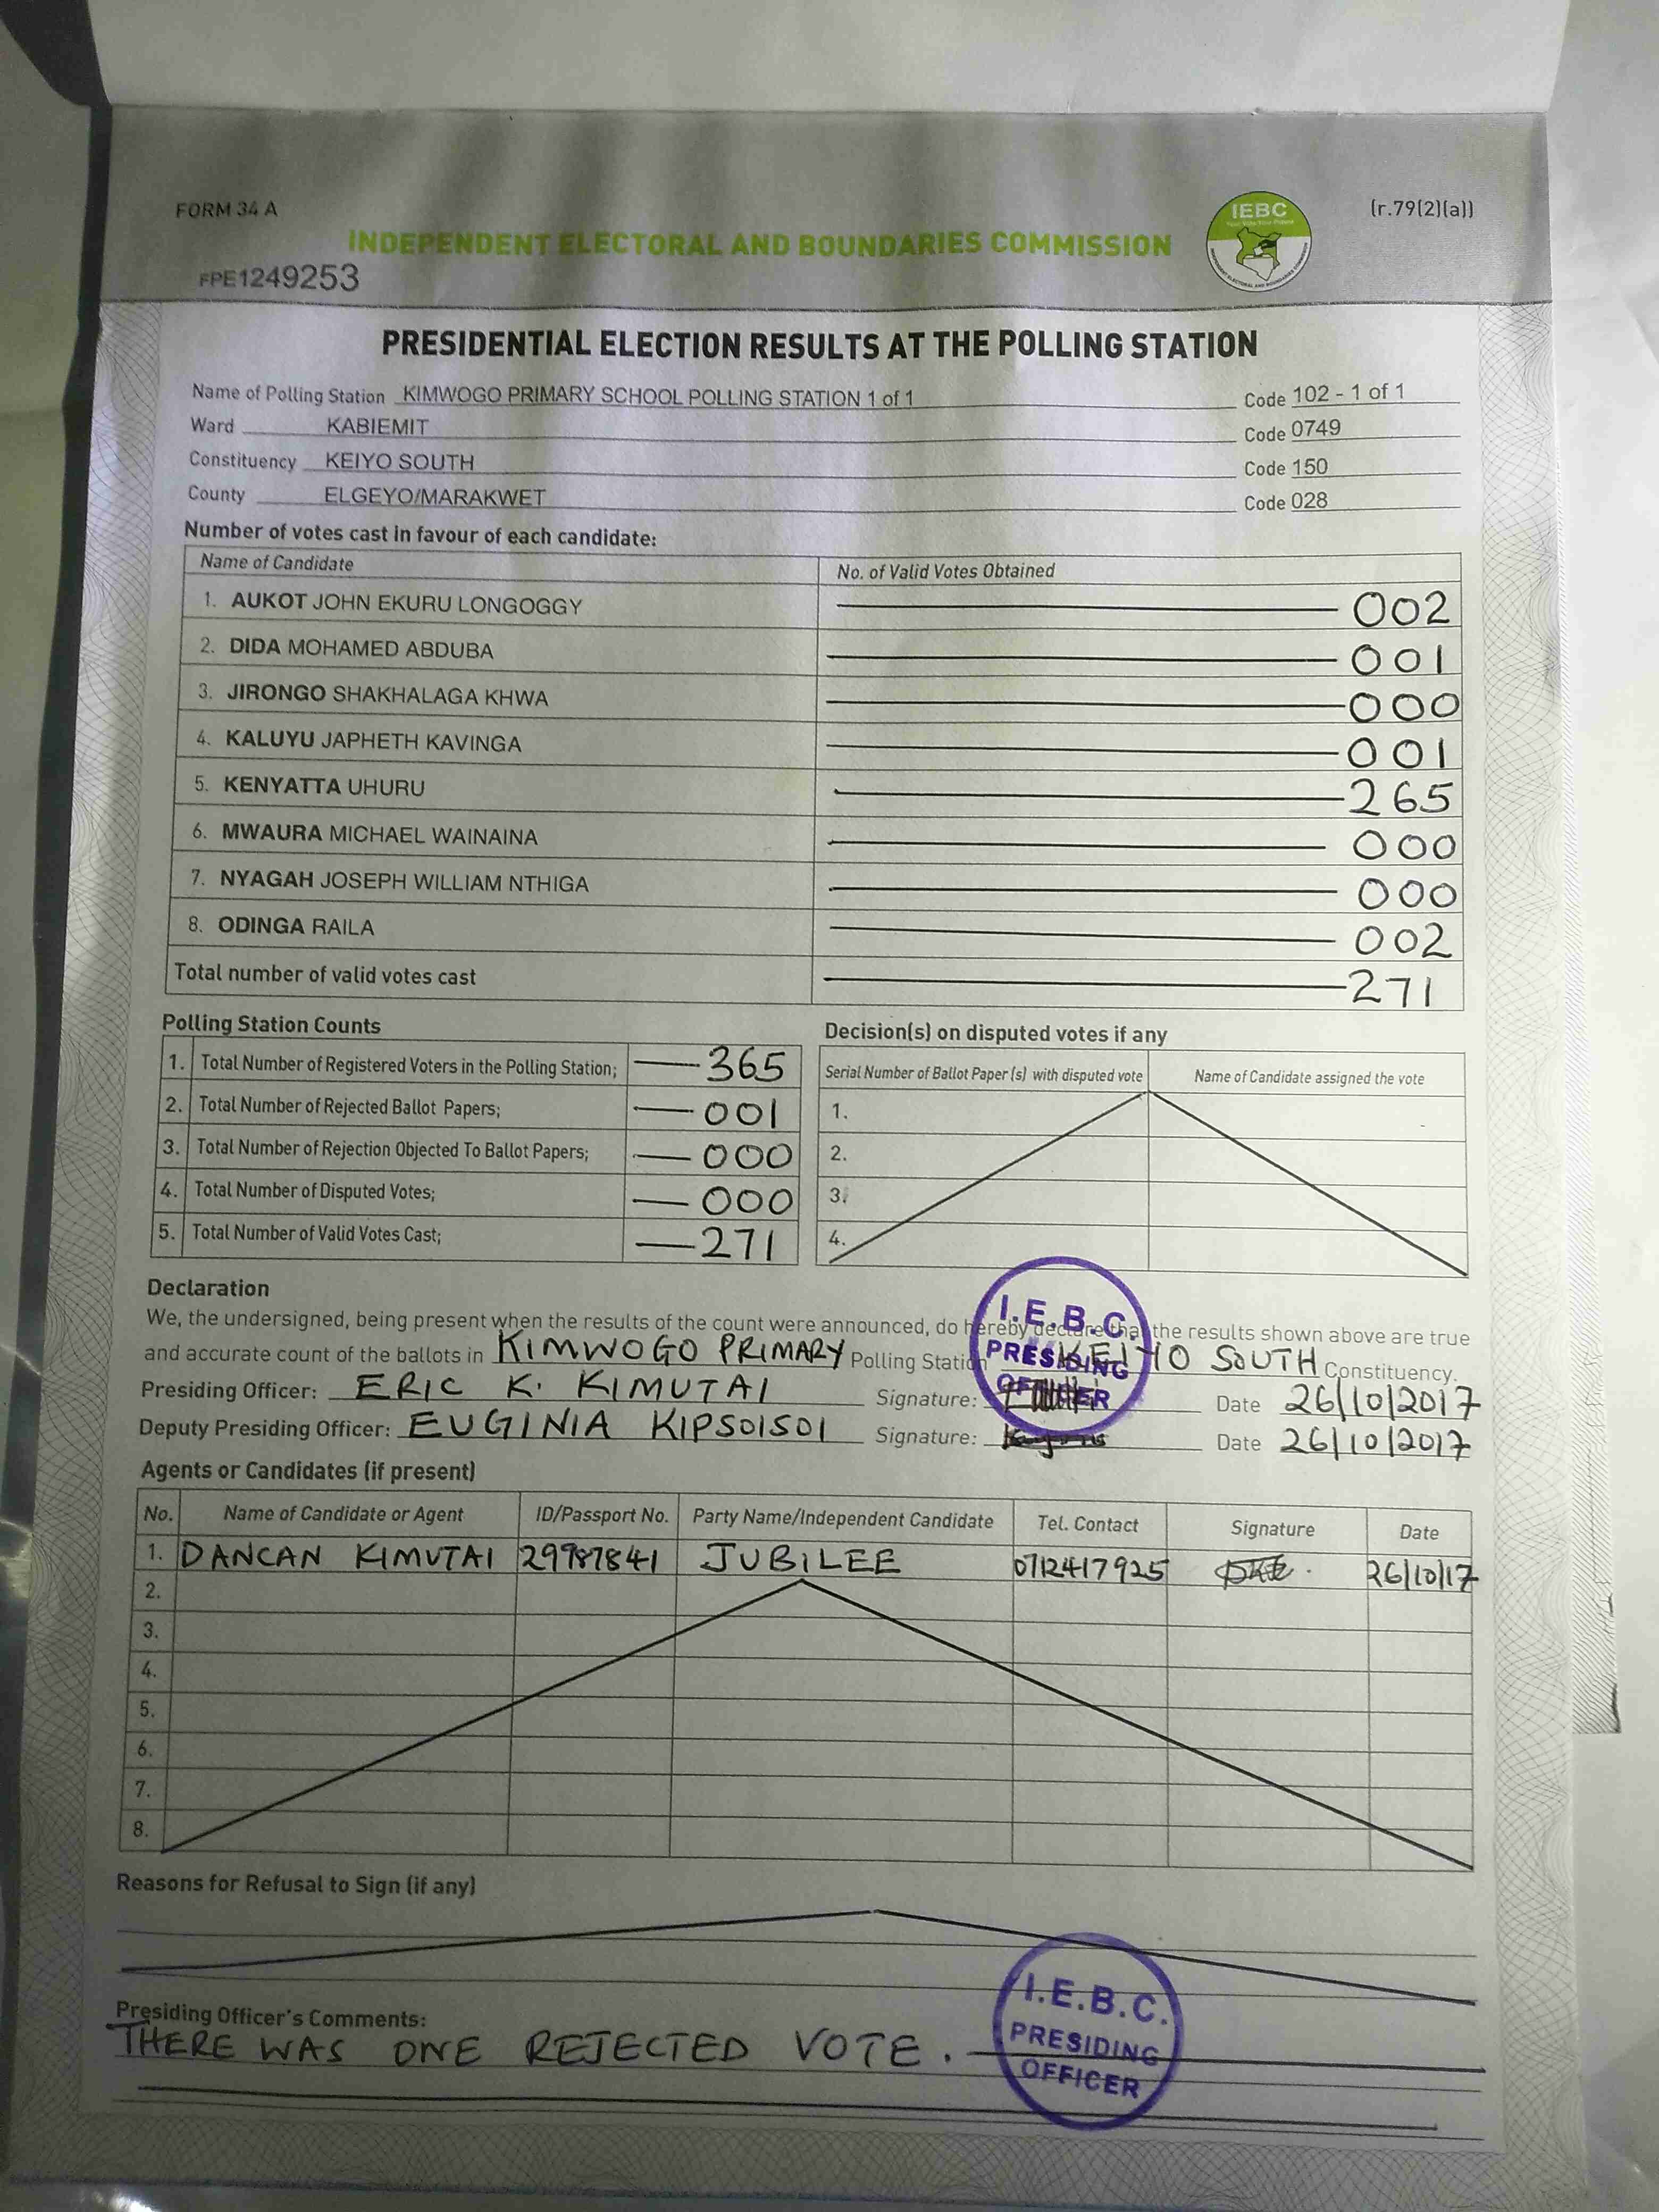 FORM 34 A
IEBC
(r.79(2)(a))
INDEPENDENT ELECTORAL AND BOUNDARIES COMMISSION
FPE1249253
PRESIDENTIAL ELECTION RESULTS AT THE POLLING STATION
Name of Polling Station KIMWOGO PRIMARY SCHOOL POLLING STATION 1 of 1 Code 102 - 1 of 1
Ward KABIEMIT Code 0749
Constituency KEIYO SOUTH Code 150
County ELGEYO/MARAKWET Code 028
Number of votes cast in favour of each candidate:
Name of Candidate No. of Valid Votes Obtained
1. AUKOT JOHN EKURU LONGOGGY 002
2. DIDA MOHAMED ABDUBA 001
3. JIRONGO SHAKHALAGA KHWA 000
4. KALUYU JAPHETH KAVINGA 001
5. KENYATTA UHURU 265
6. MWAURA MICHAEL WAINAINA 000
7. NYAGAH JOSEPH WILLIAM NTHIGA 000
8. ODINGA RAILA 002
Total number of valid votes cast 271
Polling Station Counts
1. Total Number of Registered Voters in the Polling Station; 365
2. Total Number of Rejected Ballot Papers; 001
3. Total Number of Rejection Objected To Ballot Papers; 000
4. Total Number of Disputed Votes; 000
5. Total Number of Valid Votes Cast; 271
Decision(s) on disputed votes if any
Serial Number of Ballot Paper (s) with disputed vote Name of Candidate assigned the vote
1.
2.
3.
4.
Declaration
We, the undersigned, being present when the results of the count were announced, do hereby declare that the results shown above are true
and accurate count of the ballots in KIMWOGO PRIMARY Polling Station KEIYO SOUTH Constituency.
Presiding Officer: ERIC K. KIMUTAI Signature: Date 26/10/2017
Deputy Presiding Officer: EUGINIA KIPSOISOI Signature: Date 26/10/2017
I.E.B.C.
PRESIDING
OFFICER
Agents or Candidates (if present)
No. Name of Candidate or Agent ID/Passport No. Party Name/Independent Candidate Tel. Contact Signature Date
1. DANCAN KIMUTAI 29987841 JUBILEE 0712417925 26/10/17
2.
3.
4.
5.
6.
7.
8.
Reasons for Refusal to Sign (if any)
Presiding Officer's Comments:
THERE WAS ONE REJECTED VOTE.
I.E.B.C.
PRESIDING
OFFICER